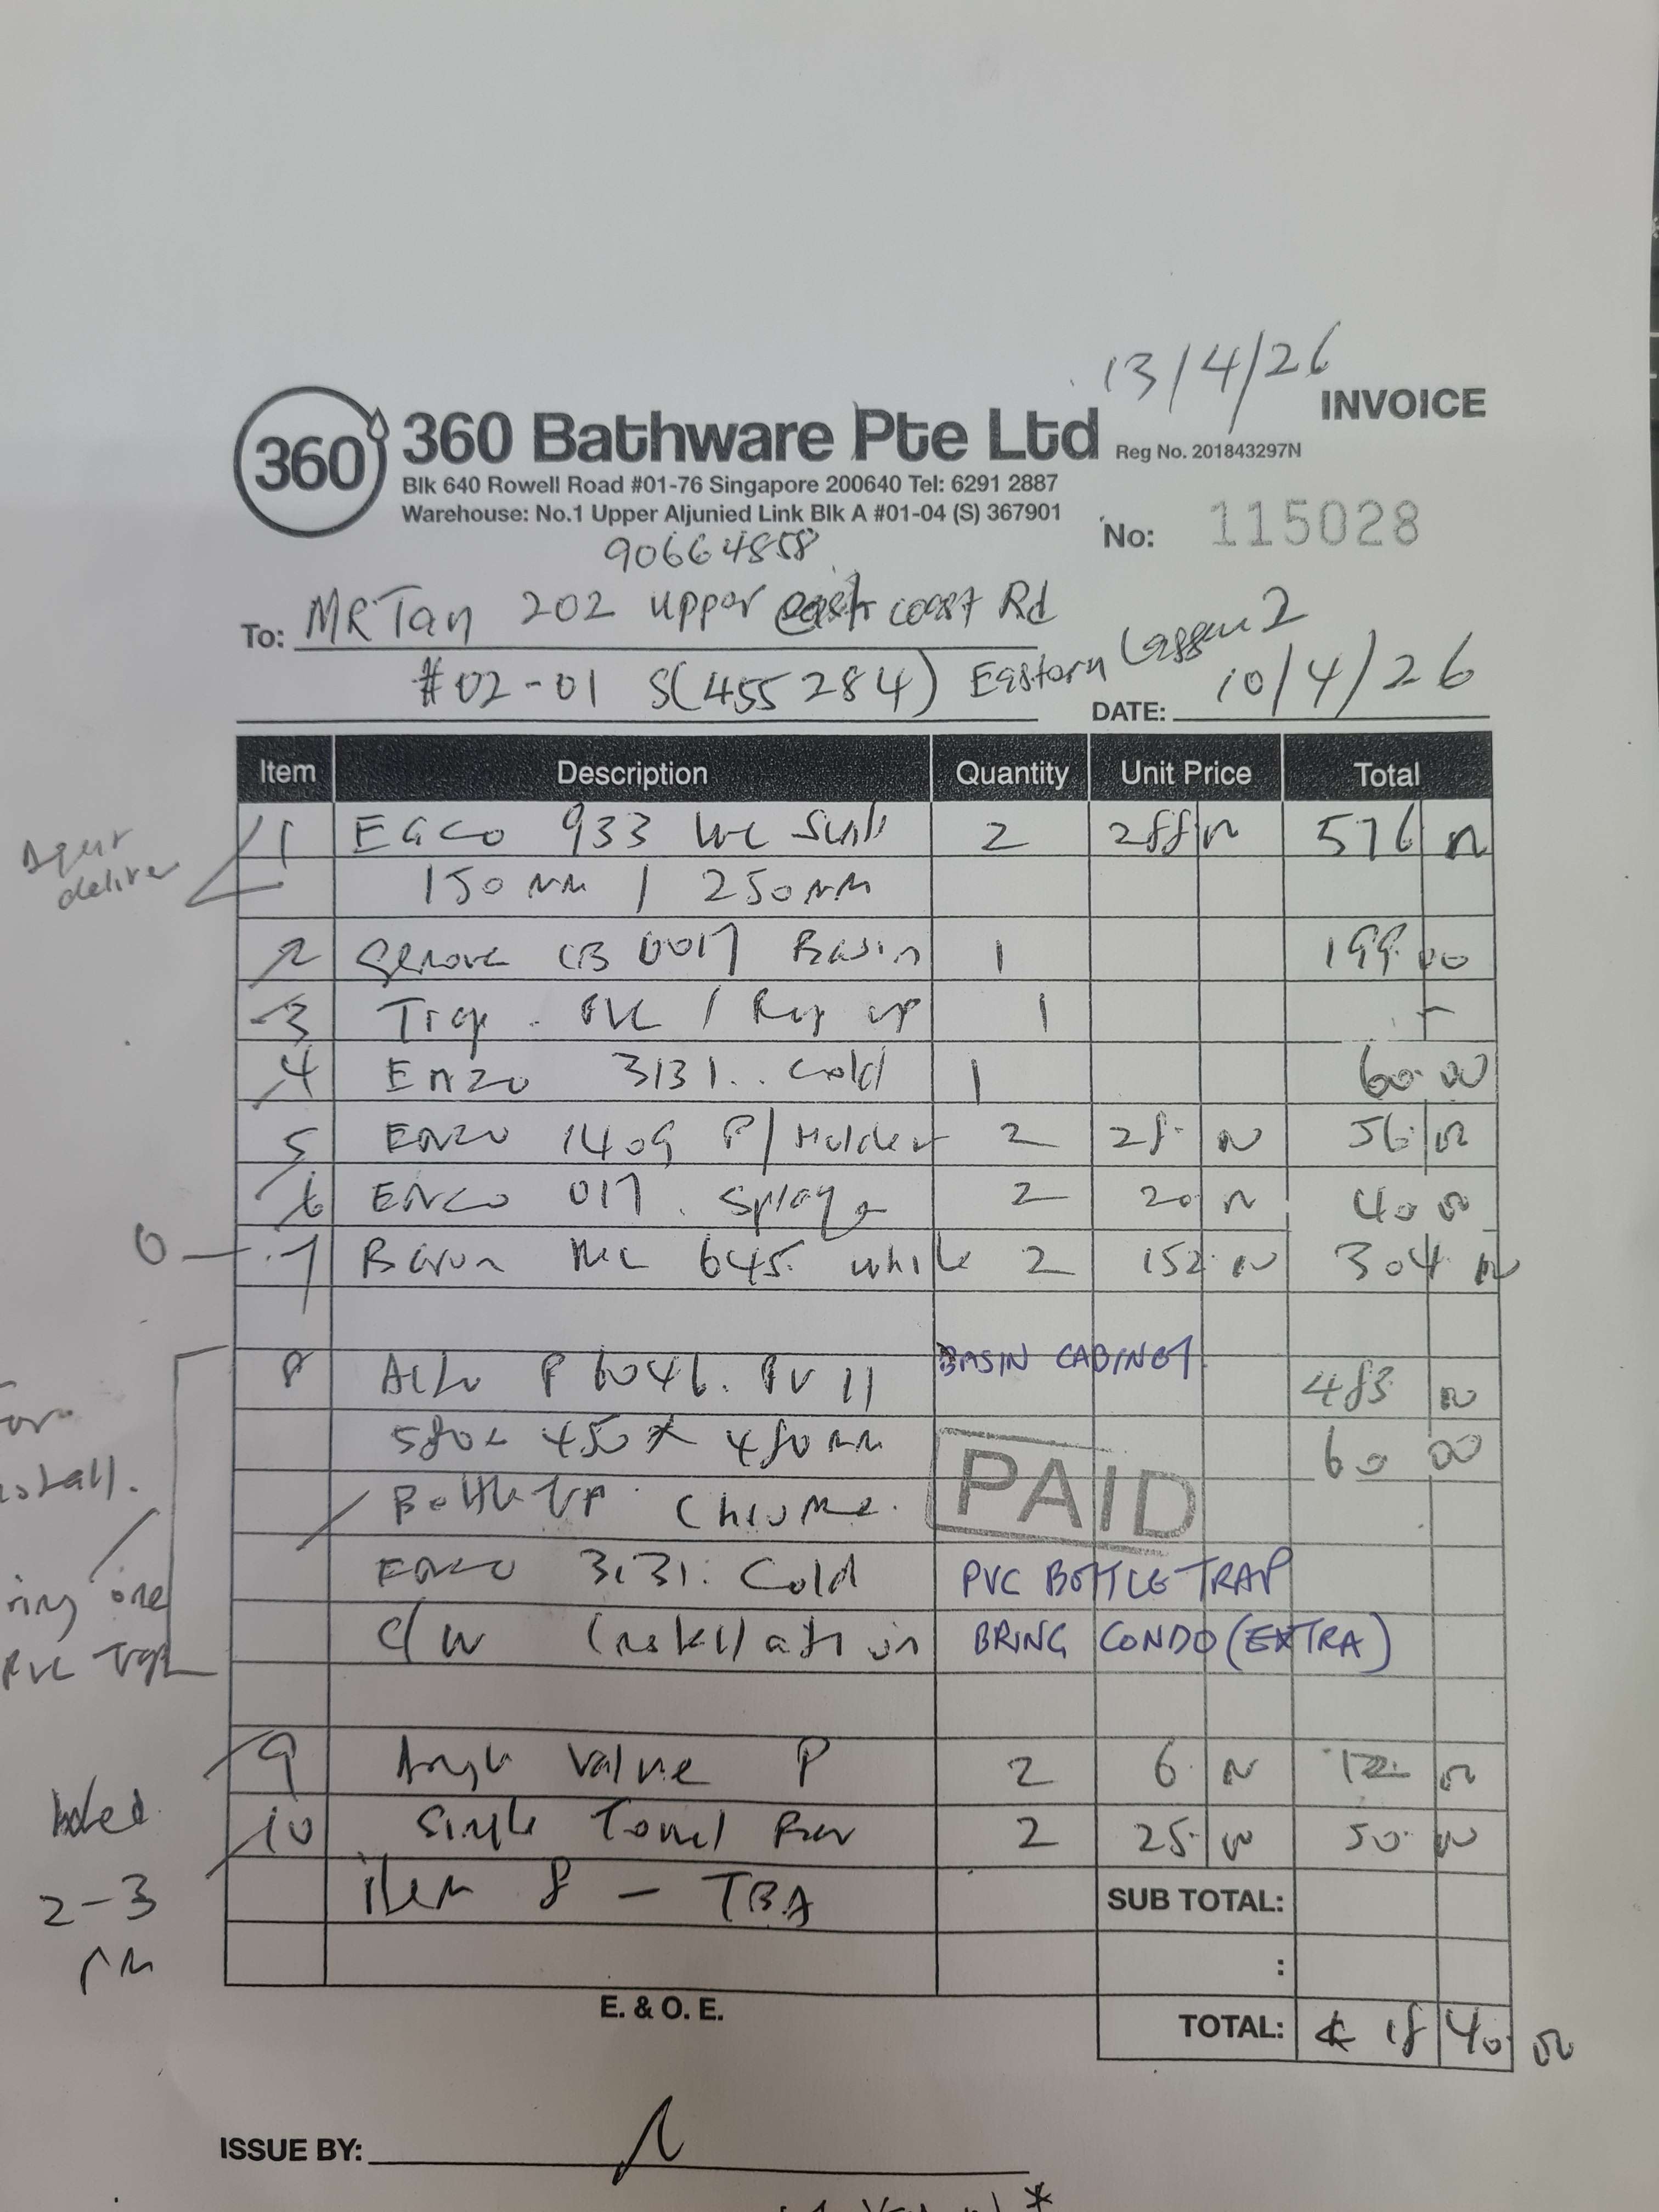 13/4/26
INVOICE
360
360 Bathware Pte Ltd Reg No. 201843297N
Blk 640 Rowell Road #01-76 Singapore 200640 Tel: 6291 2887
Warehouse: No.1 Upper Aljunied Link Blk A #01-04 (S) 367901
90664858
No: 115028
To: MR Tan 202 upper east coast Rd
#02-01 S(455284) Eastern 2
DATE: 10/4/26
Item Description Quantity Unit Price Total
1 933 WC 2 288 576
150mm / 250mm
deliver
2 CB 0017 Basin 1 199.00
3 Trap PVC / 1 -
4 Enzo 3131 Cold 1 60.00
5 Enzo 1409 P/Holder 2 28 56
6 017 2 20 40
7 645 white 2 152 304
8 BASIN CABINET 483
580 x 450 x 480mm 60 00
Bottle Chrome
PAID
Enzo 3131 Cold PVC BOTTLE TRAP
c/w installation BRING CONDO (EXTRA)
one
PVC Trap
9 Angle Valve P 2 6 12
10 Single Towel Bar 2 25 50
item 8 - TBA SUB TOTAL:
2-3
pm
:
E. & O. E.
TOTAL: 1840
ISSUE BY: